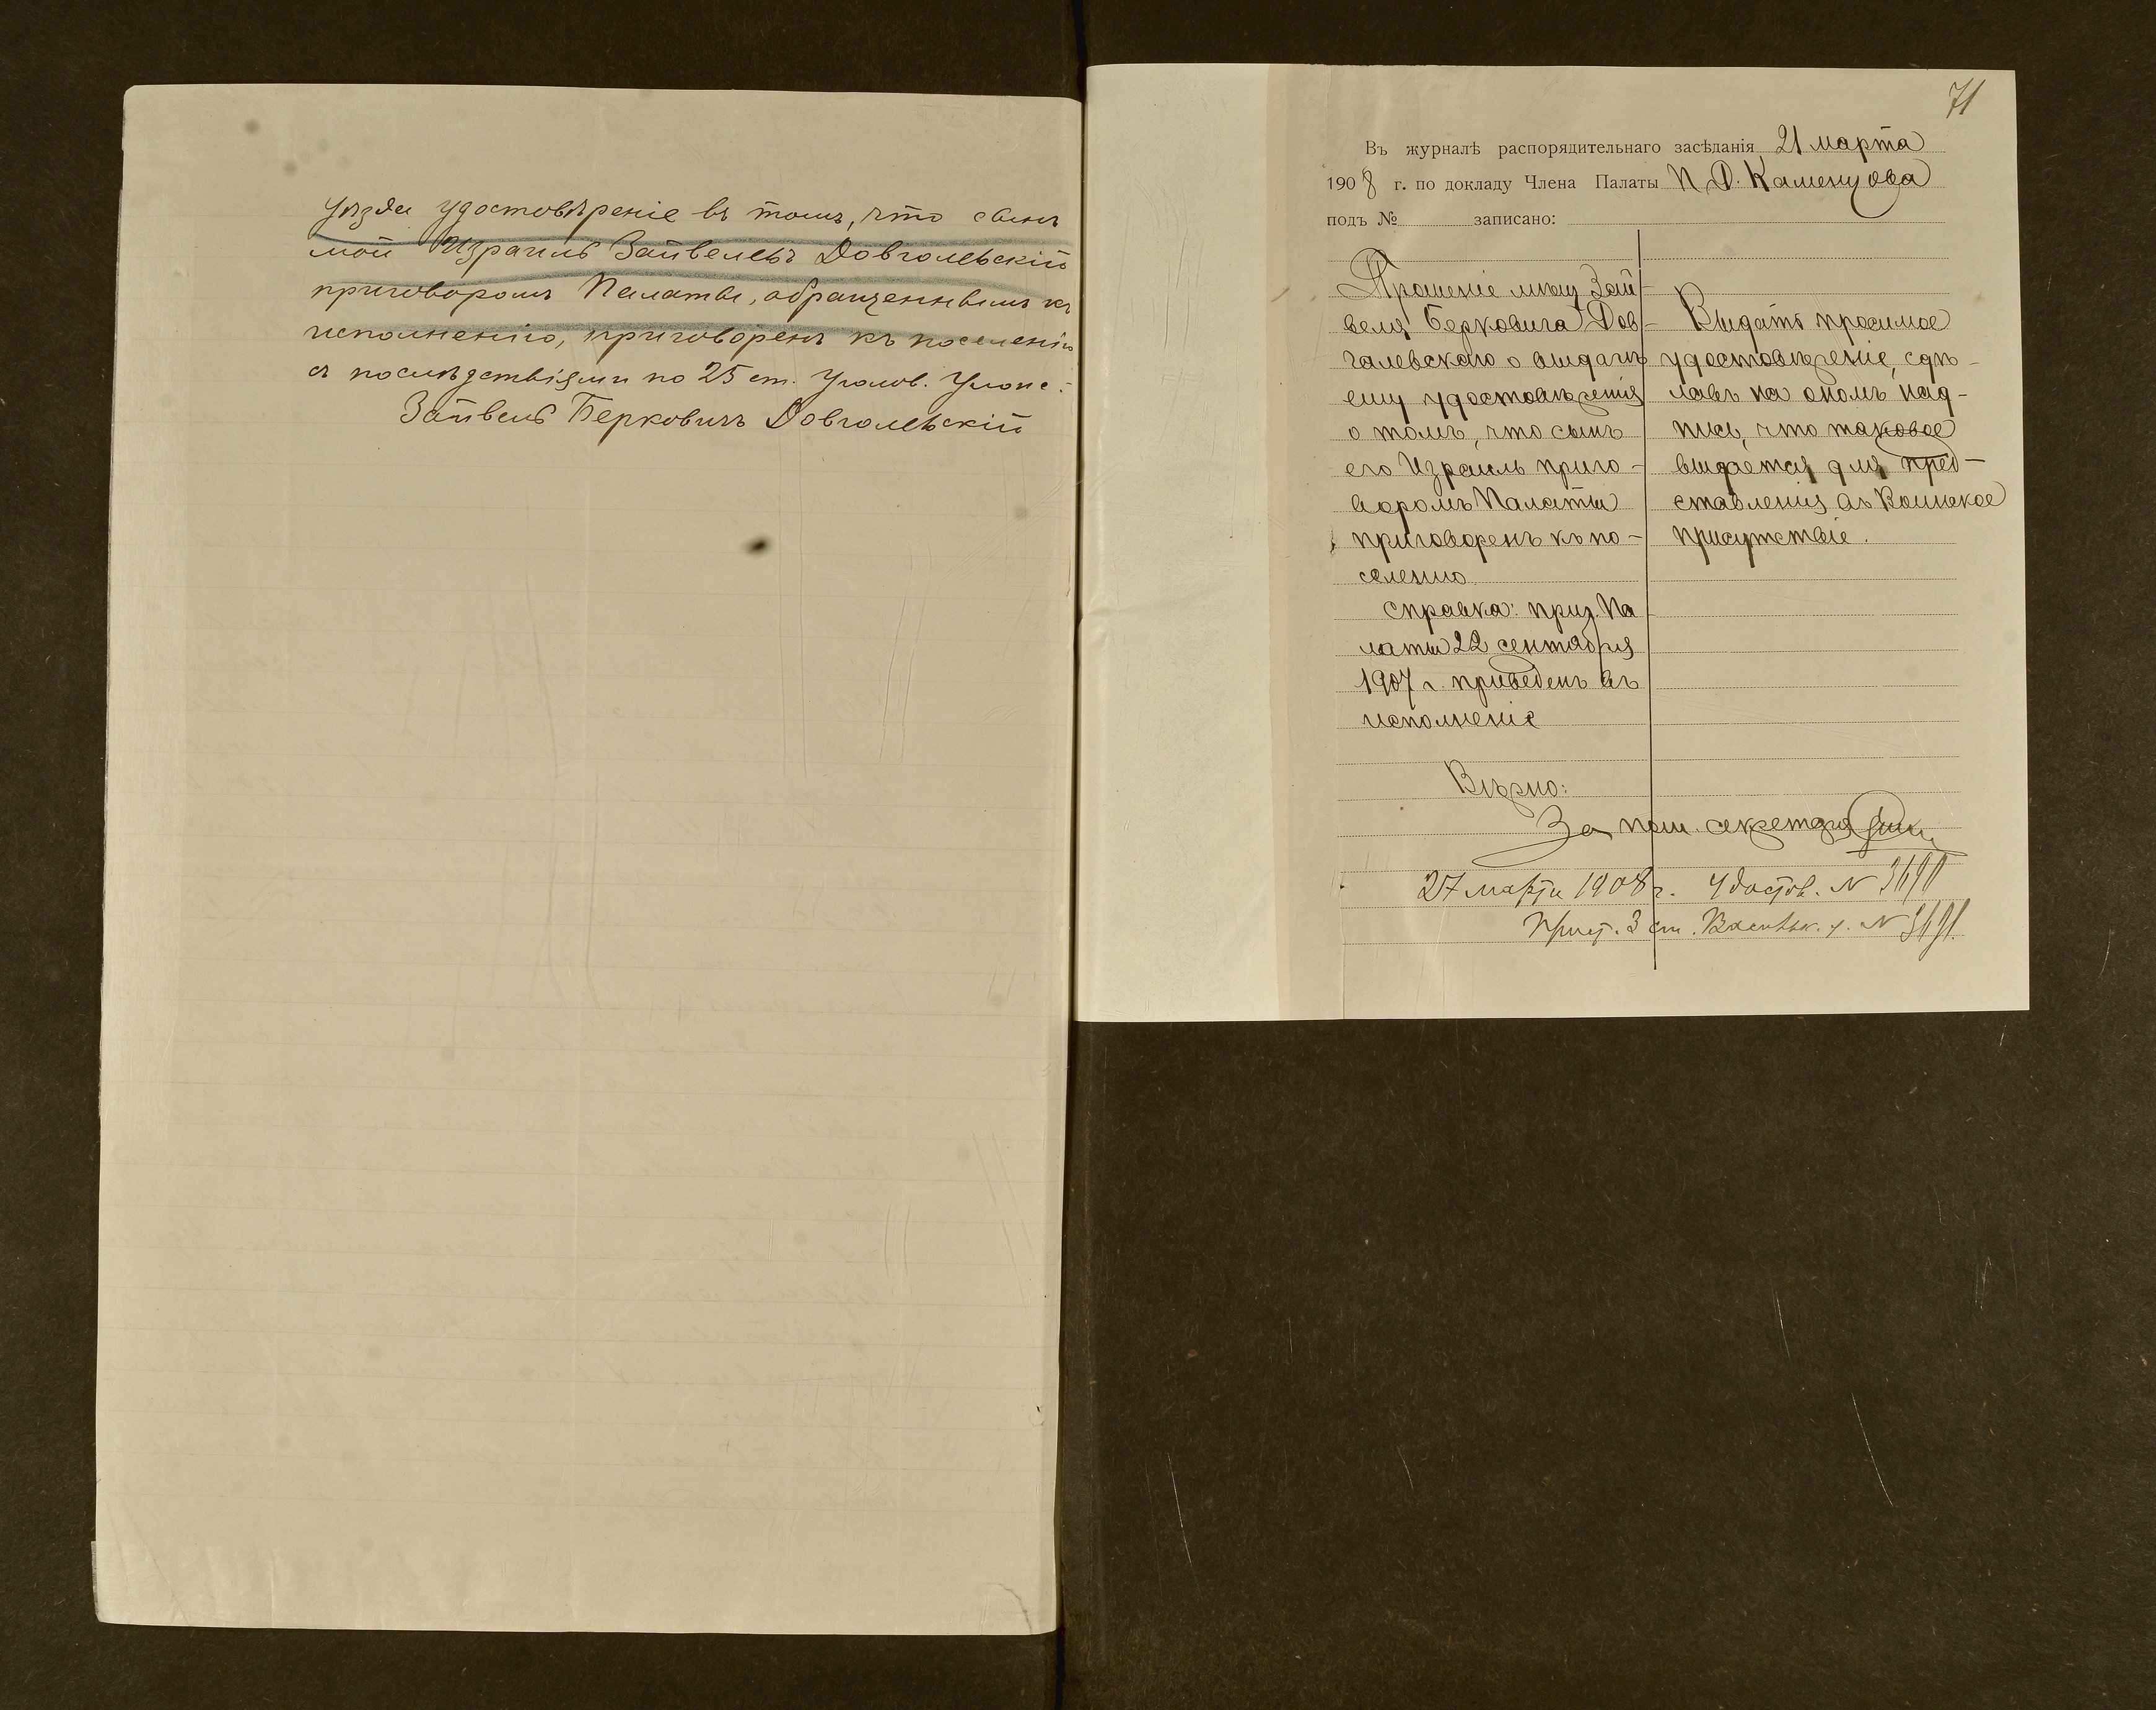 уѣзда удостовѣреніе въ томъ, что сынъ
мой Израиль Зайвелевъ Довголевскій
приговоромъ Палаты, обращеннымъ къ
исполненію, приговоренъ къ поселенію
съ послѣдствіями по 25 ст. Уголов. Улож.
Зайвель Берковичъ Довголевскій
71
Въ журналѣ распорядительнаго засѣданія 21 марта
1908 г. по докладу Члена Палаты П. Д. Каменцова
подъ № записано:
Прошеніе мѣщ. Зай-
веля Берковича Дов-
галевскаго о выдачѣ
ему удостовѣренія
о томъ, что сынъ
его Израиль приго-
воромъ Палаты
приговоренъ къ по-
селенію
Справка: приг. Па-
латы 22 сентября
1907 г. приведенъ въ
исполненіе
Выдать просимое
удостовѣреніе, сдѣ-
лавъ на ономъ над-
пись, что таковое
выдается для пред-
ставленія въ Воинское
присутствіе.
Вѣрно:
За пом. секретаря
27 марта 1908 г. Удостов. № 3690
Прист. 3 ст. Васильк. у. № 3691.